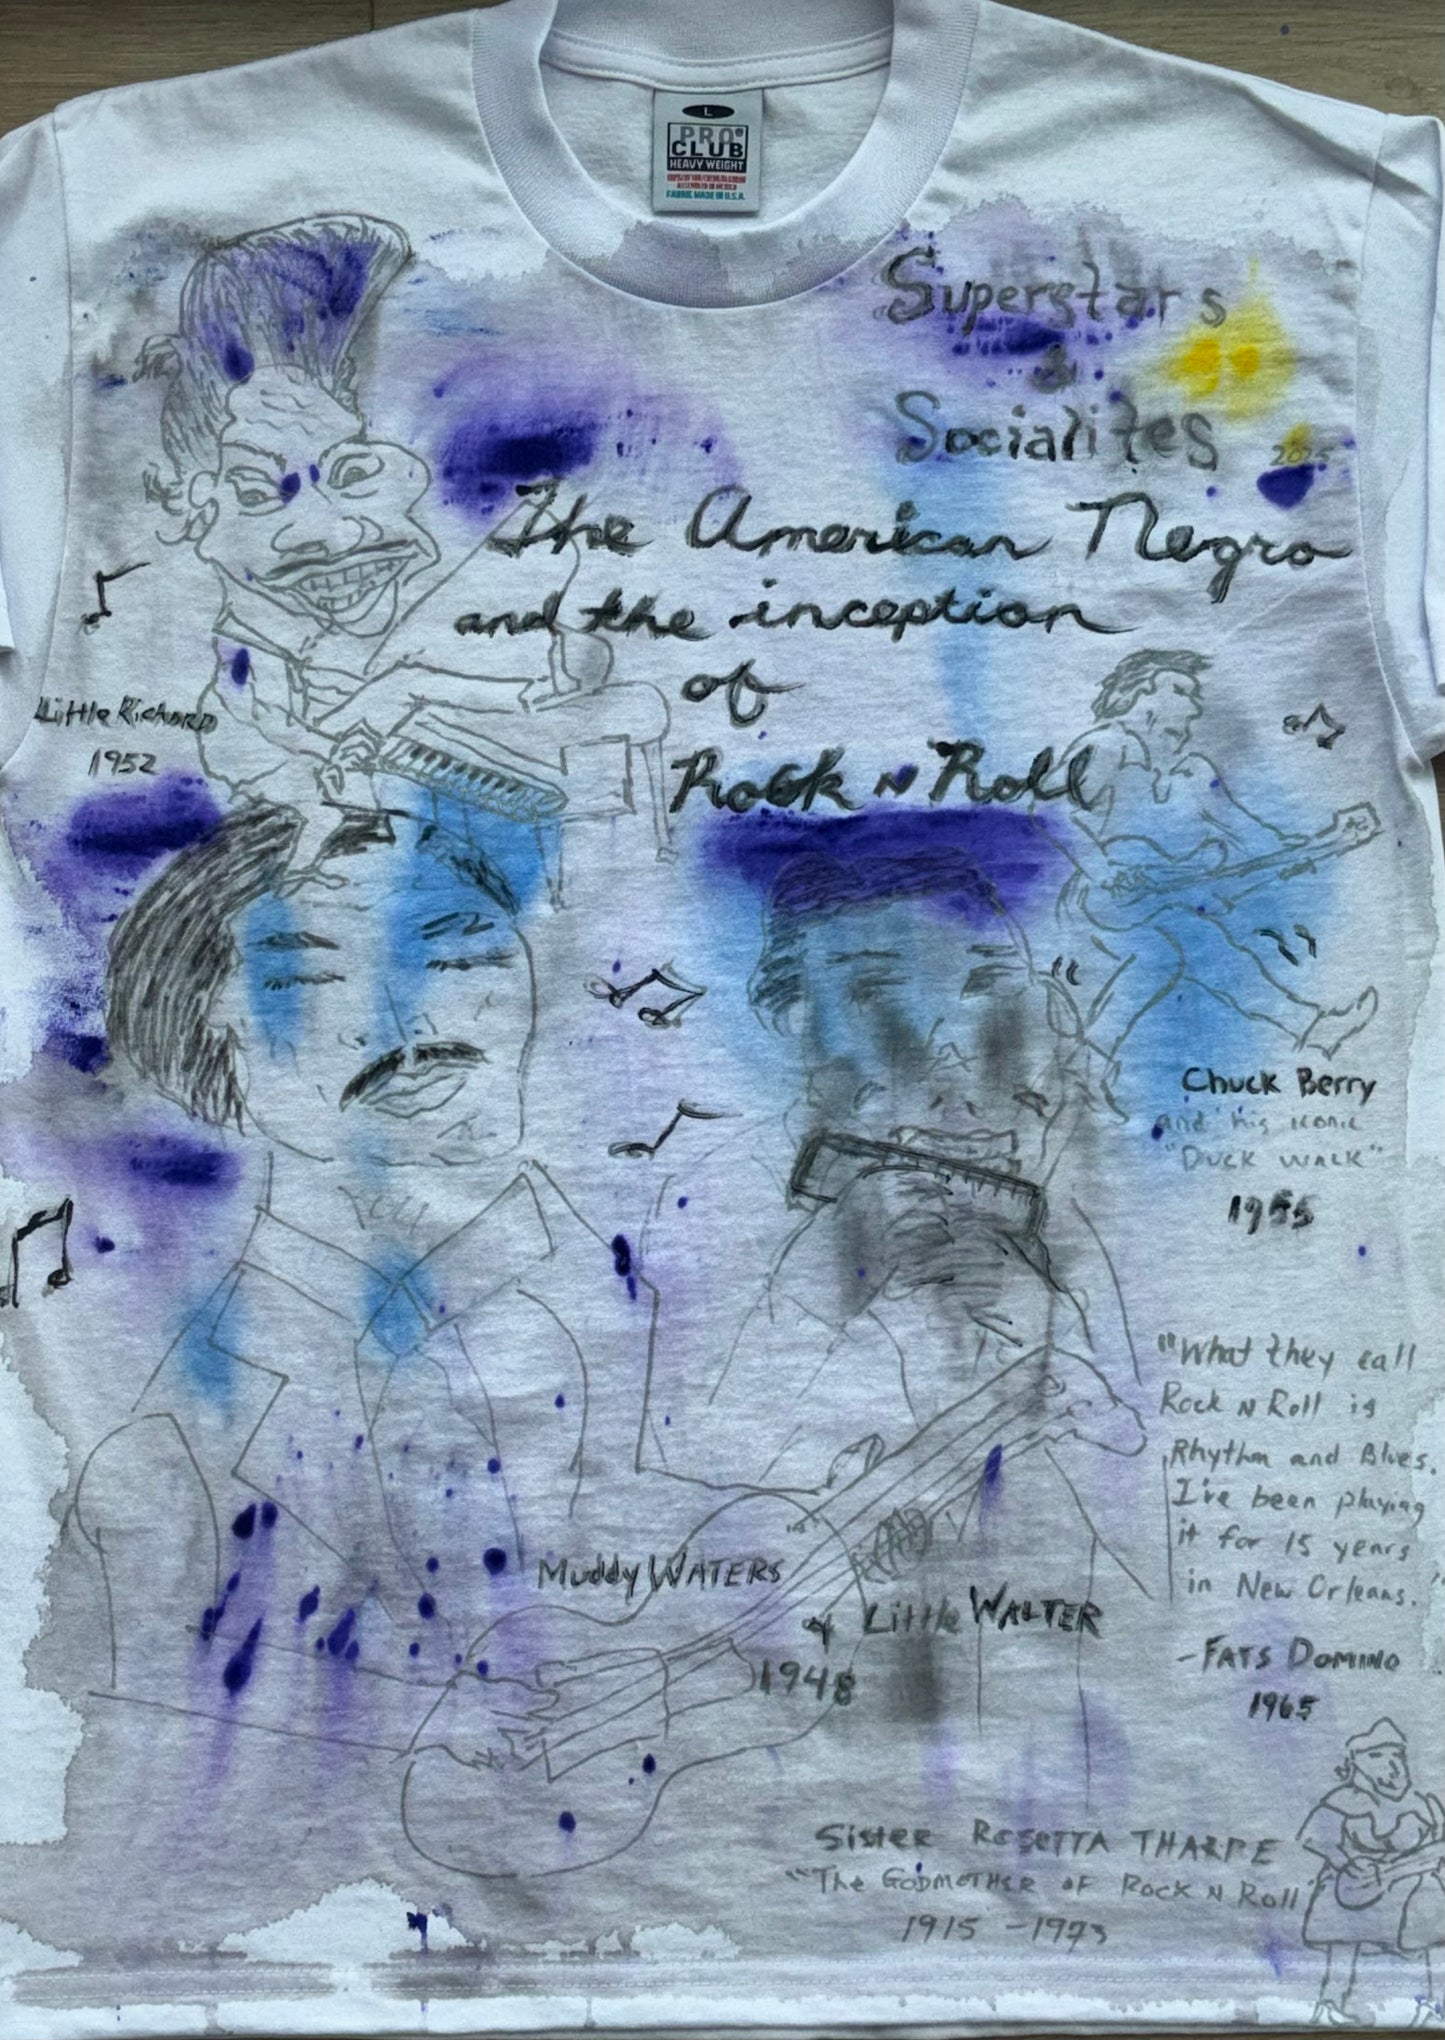 L
PRO
CLUB
HEAVY WEIGHT
ASSEMBLED IN MEXICO
FABRIC MADE IN U.S.A.
Superstars
&
Socialites
2025
The American Negro
and the inception
of
Rock N Roll
Little Richard
1952
Chuck Berry
and his iconic
"Duck walk"
1955
"What they call
Rock N Roll is
Rhythm and Blues.
I've been playing
it for 15 years
in New Orleans."
-FATS DOMINO
1965
Muddy WATERS
& Little WALTER
1948
Sister ROSETTA THARPE
"The GODMOTHER OF ROCK N Roll"
1915 - 1973